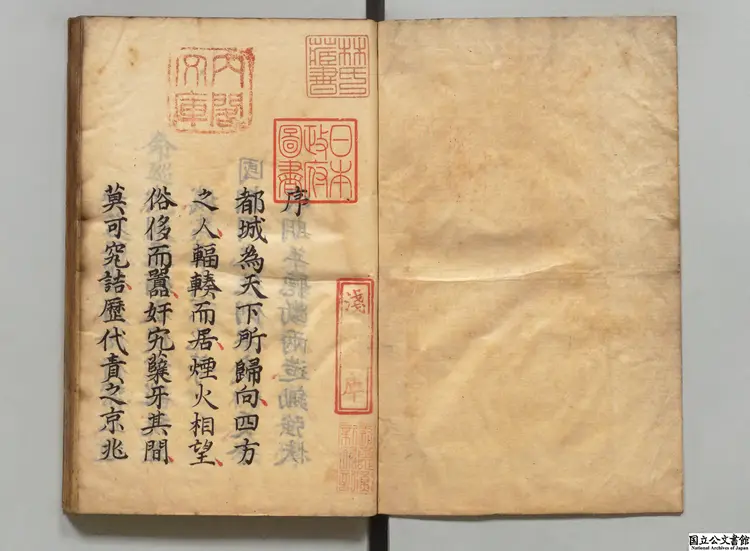 林氏
藏書
日本
政府
圖書
內閣
文庫
淺
序
都城為天下所歸向四方
之人輻輳而居煙火相望
俗侈而囂奸宄蘖牙其間
莫可究詰歷代責之京兆
国立公文書館
National Archives of Japan